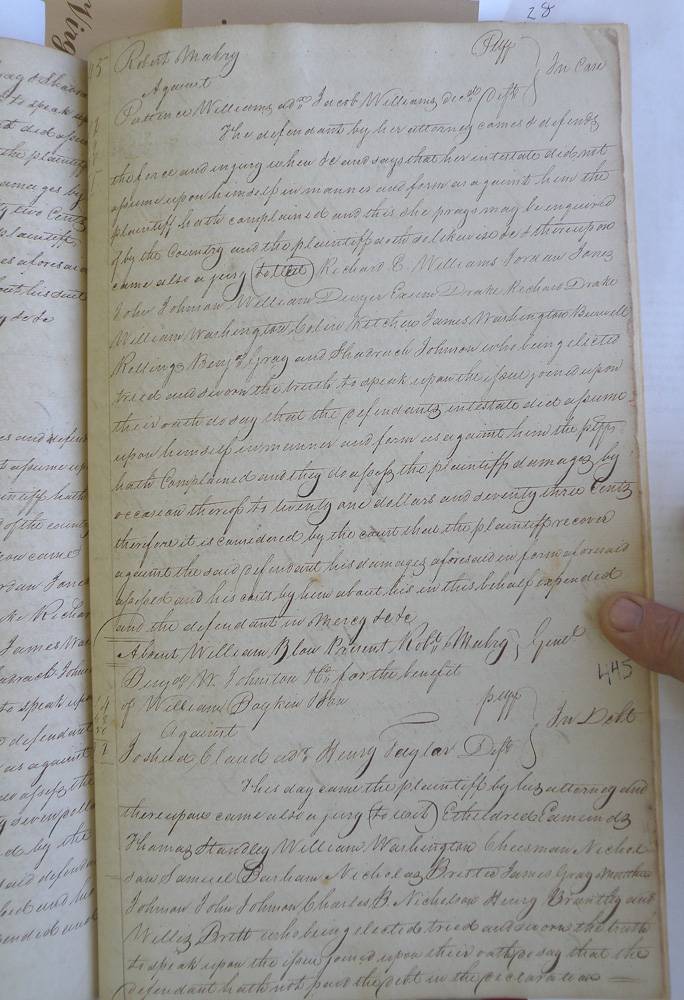 28
Robert Mabry Pltff
Against In Case
Patience Williams adx Jacob Williams decd Deft
The defendant by her attorney comes & defends
the force and injury when &c and says that her intestate did not
assume upon himself in manner and form as against him the
plaintiff hath complained and this she prays may be enquired
of by the Country and the plaintiff doth so likewise &c & thereupon
came also a jury (to wit) Richard E. Williams Jordan Jones
John Johnson William Dwyer Exum Drake Richard Drake
William Washington Colin Kitchen James Washington Burwell
Rollings Benja Gray and Shadrach Johnson who being elected
tried and sworn the truth to speak upon the issue joined upon
their oath do say that the defendants intestate did assume
upon himself in manner and form as against him the pltff
hath Complained and they do assess the plaintiffs damages by
occasion thereof to twenty one dollars and seventy three Cents
therefore it is considered by the court that the plaintiff recover
against the said defendant his damages aforesaid in form aforesaid
assessed and his costs by him about his in this behalf expended
and the defendant in Mercy &c &c
Absent William Blow Present Robt Mabry Gent
445
Benja W. Johnston for the benefit
of William Boykin pltff
Against In Debt
Joshua Claud adr Henry Taylor Deft
This day came the plaintiff by his attorney and
thereupon came also a jury (to wit) Etheldred Edmunds
Thomas Standley William Washington Cheesman Nichol
son Samuel Barham Nicholas James Gray
Johnson John Johnson Charles B. Nicholson Henry Brantley and
Willis Britt who being elected tried and sworn the truth
to speak upon the issue joined upon their oath do say that the
defendant hath not paid the debt in the declaration